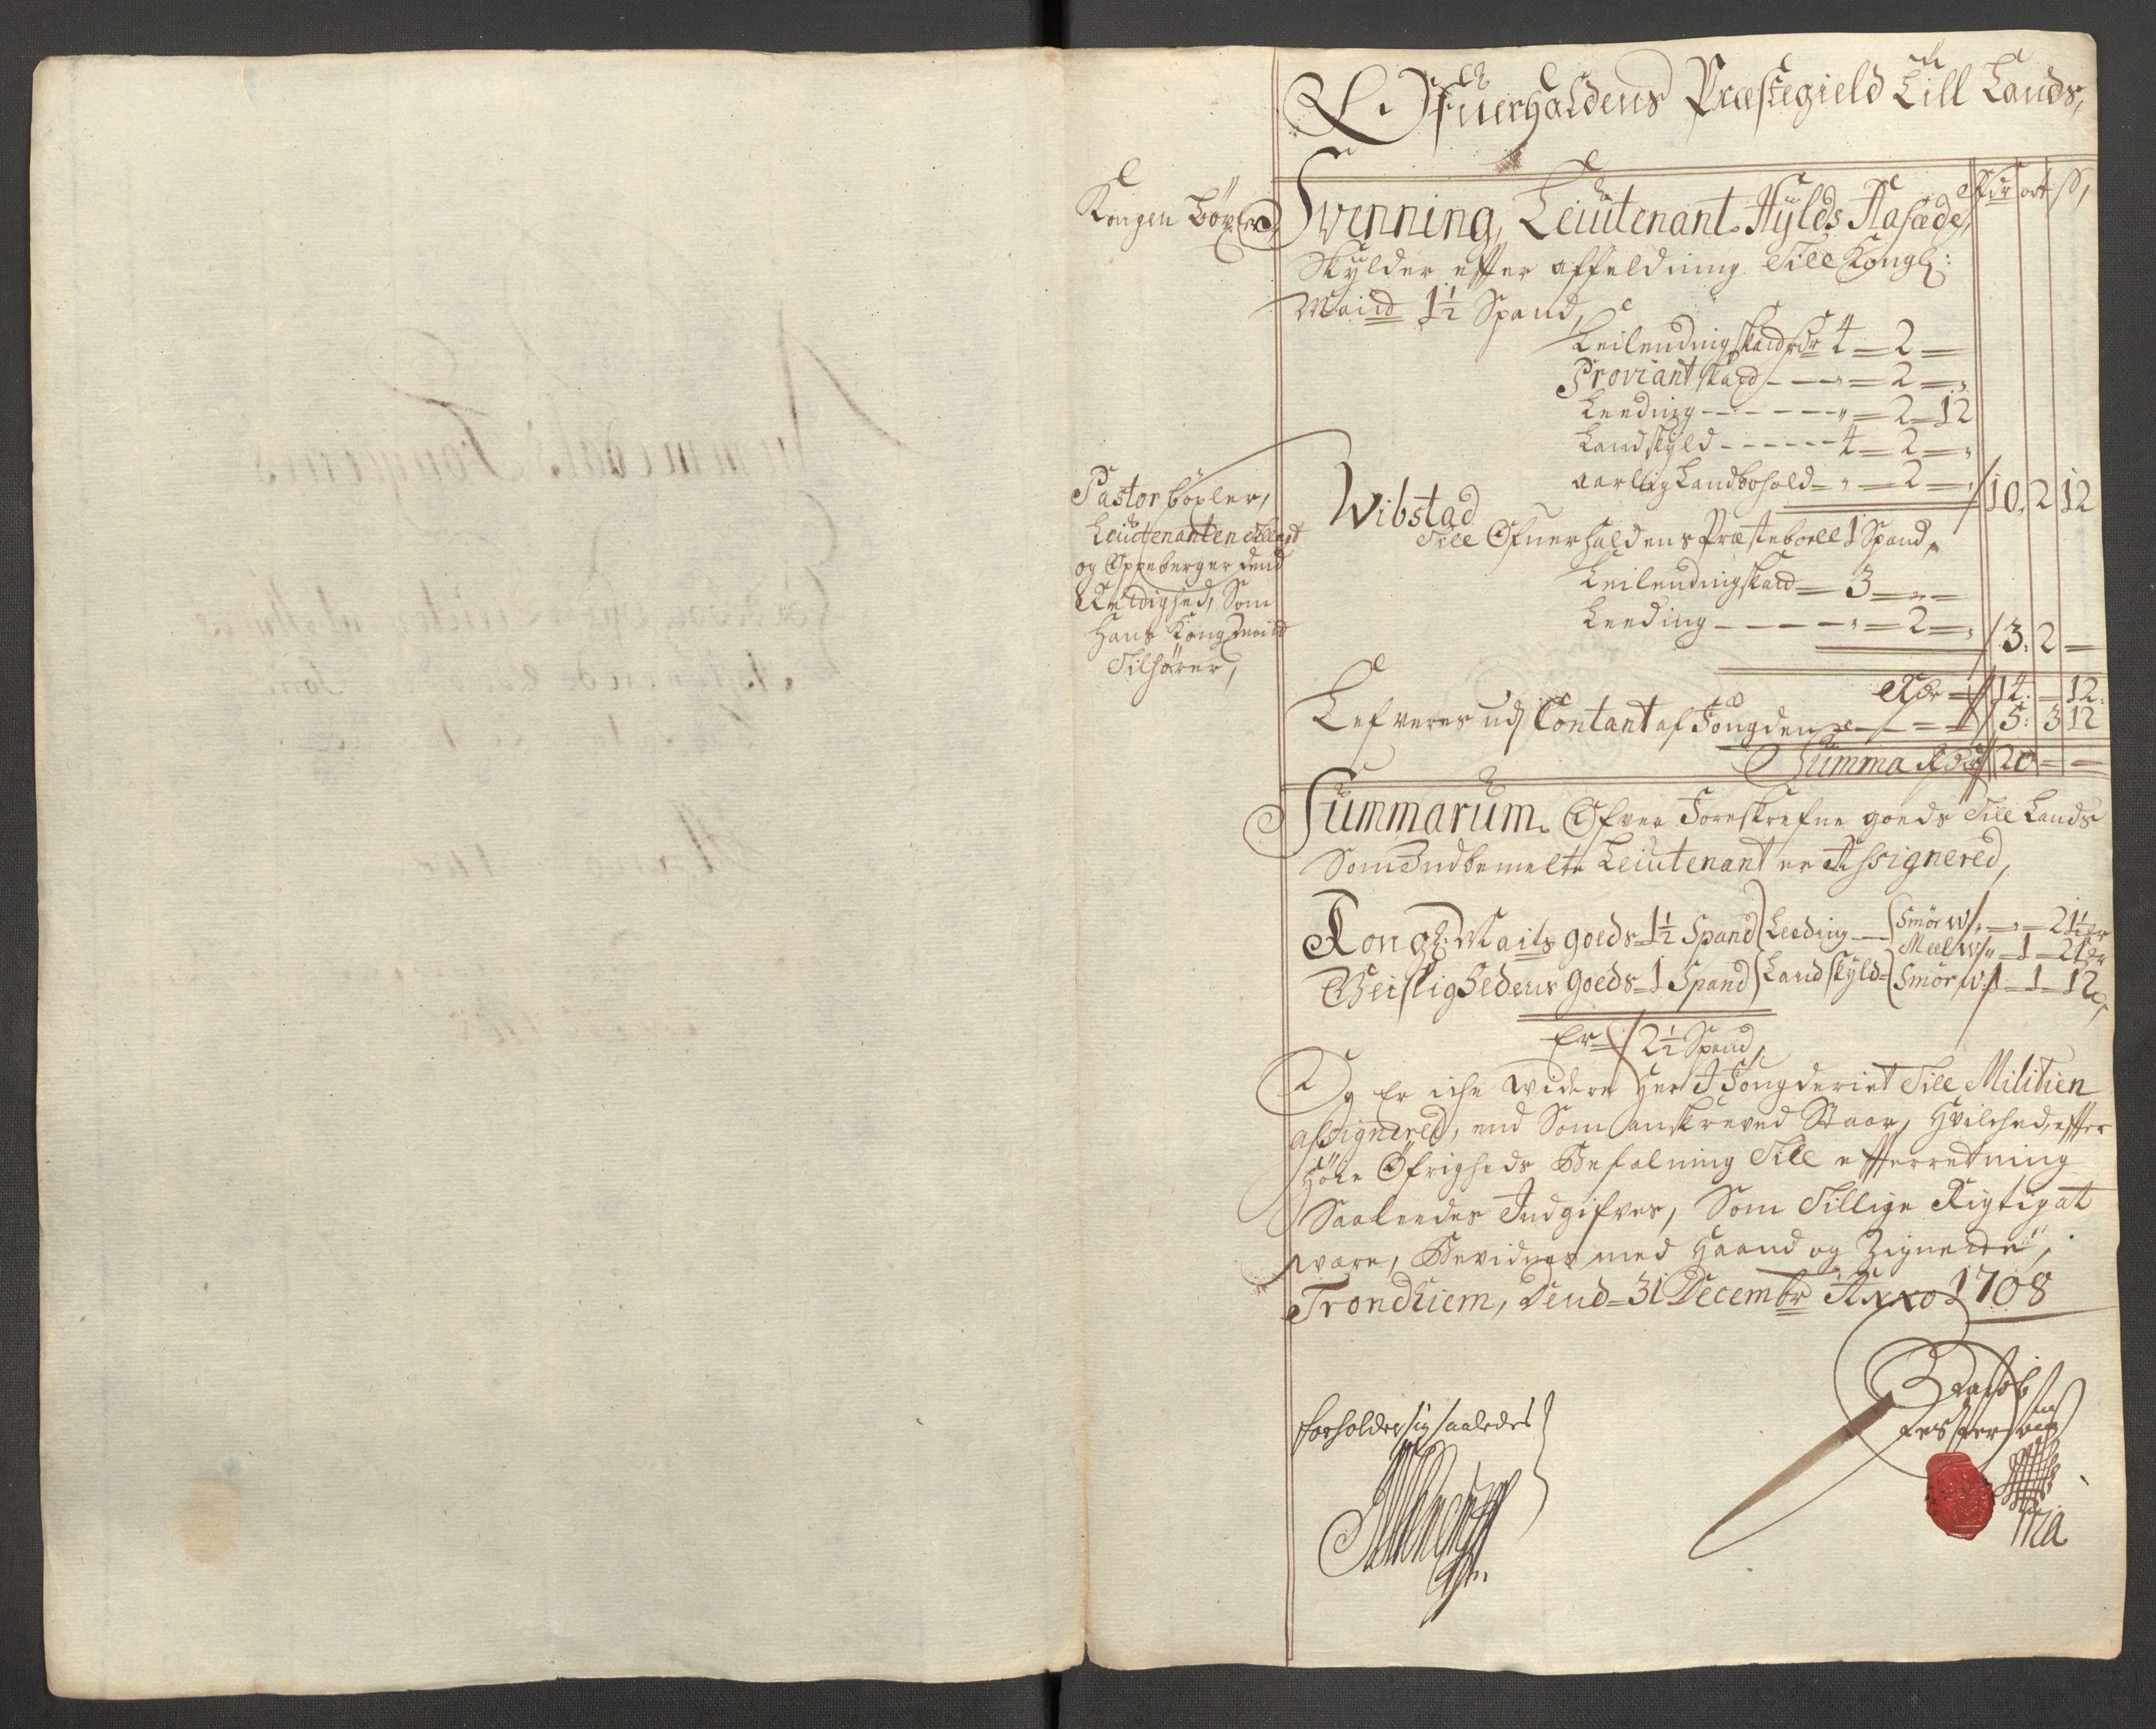 Ofuerhaldens Præstegield Till Lands,
Rdr ort ß,
Kongen böxler,
Svenning, Leiutenant Hylds Aasæde,
Skylder effter affeldning Till Kongl:
Maitt 1½ Spand,
Leilendingskatt Rdr 4 = 2 =
Proviantskatt - - - " = 2 = "
Leeding - - - - - - - " = 2 = 12
Landskyld - - - - - - 4 = 2 = "
aarlig Landbohold = " = 2 = " / 10, 2 12
Pastor böxler,
Leiutenanten
og Oppeberger dend
Rettighed, Som
Hans Kongl Maitt
Tilhörer,
Wibstad
Till Ofuerhaldens Præsteboell 1 Spand,
Leilendingskatt = 3 = " =
Leeding - - - - - " = 2 = " / 3: 2 =
Rdr = 14: = 12:
Lefveres udj Contant af Fougden - - - = 5: 3 12
Summa Rdr 20 = =
Summarum. Ofver Foreskrefne goeds Till Lands
Som Indbemelte Leiutenant er Assignered,
Kongl: Maits goeds = 1½ Spand Leeding Smör W/ " = " = 2½ er
Meel W/ " = 1 = 21 er
Geistlighedens goeds = 1 Spand Landskyld = Smör W/ 1 = 1 = 12
Er 2½ Spand,
Og Er iche widere Her I Fougderiet Till Militien
assignered, end Som anskreved Staar, Hvilched, effter
Höie Öfrigheds Befalning Till effterretning
Saaleedes Indgifves, Som Tillige Rigtig at
være, Bevidnes med Haand og Zignette,
Trondhiem, Dend = 31 Decembr Anno 1708
forholder sig saaledes